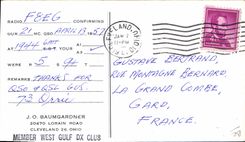 RADIO F8EG CONFIRMING
OUR 21 MC. QSO APRIL 13 1957
AT 1944 GMT
WERE 5 9
REMARKS: THANKS FOR
QSO & QSL GUS.
73
J. O. BAUMGARDNER
20470 LORAIN ROAD
CLEVELAND 26 OHIO
MEMBER WEST GULF DX CLUB
CLEVELAND, OHIO
GUSTAVE BERTRAND,
RUE MONTAGNE BERNARD,
LA GRAND COMBE,
GARD,
FRANCE.